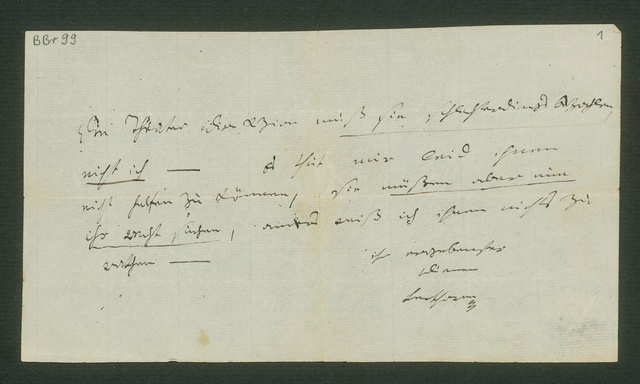 BBr 99
1
die Theater direkzion muß sie schlechterdings Bezahlen,
nicht ich — Es thut mir leid ihnen
nicht helfen zu können, sie müßen aber nun
ihr recht suchen, anders weiß ich ihnen nichts zu
rathen —
ihr ergebenster
diener
Beethoven